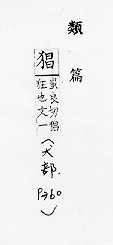 類篇
猖
蚩良切猖
狂也文一
(犬部.
P360)